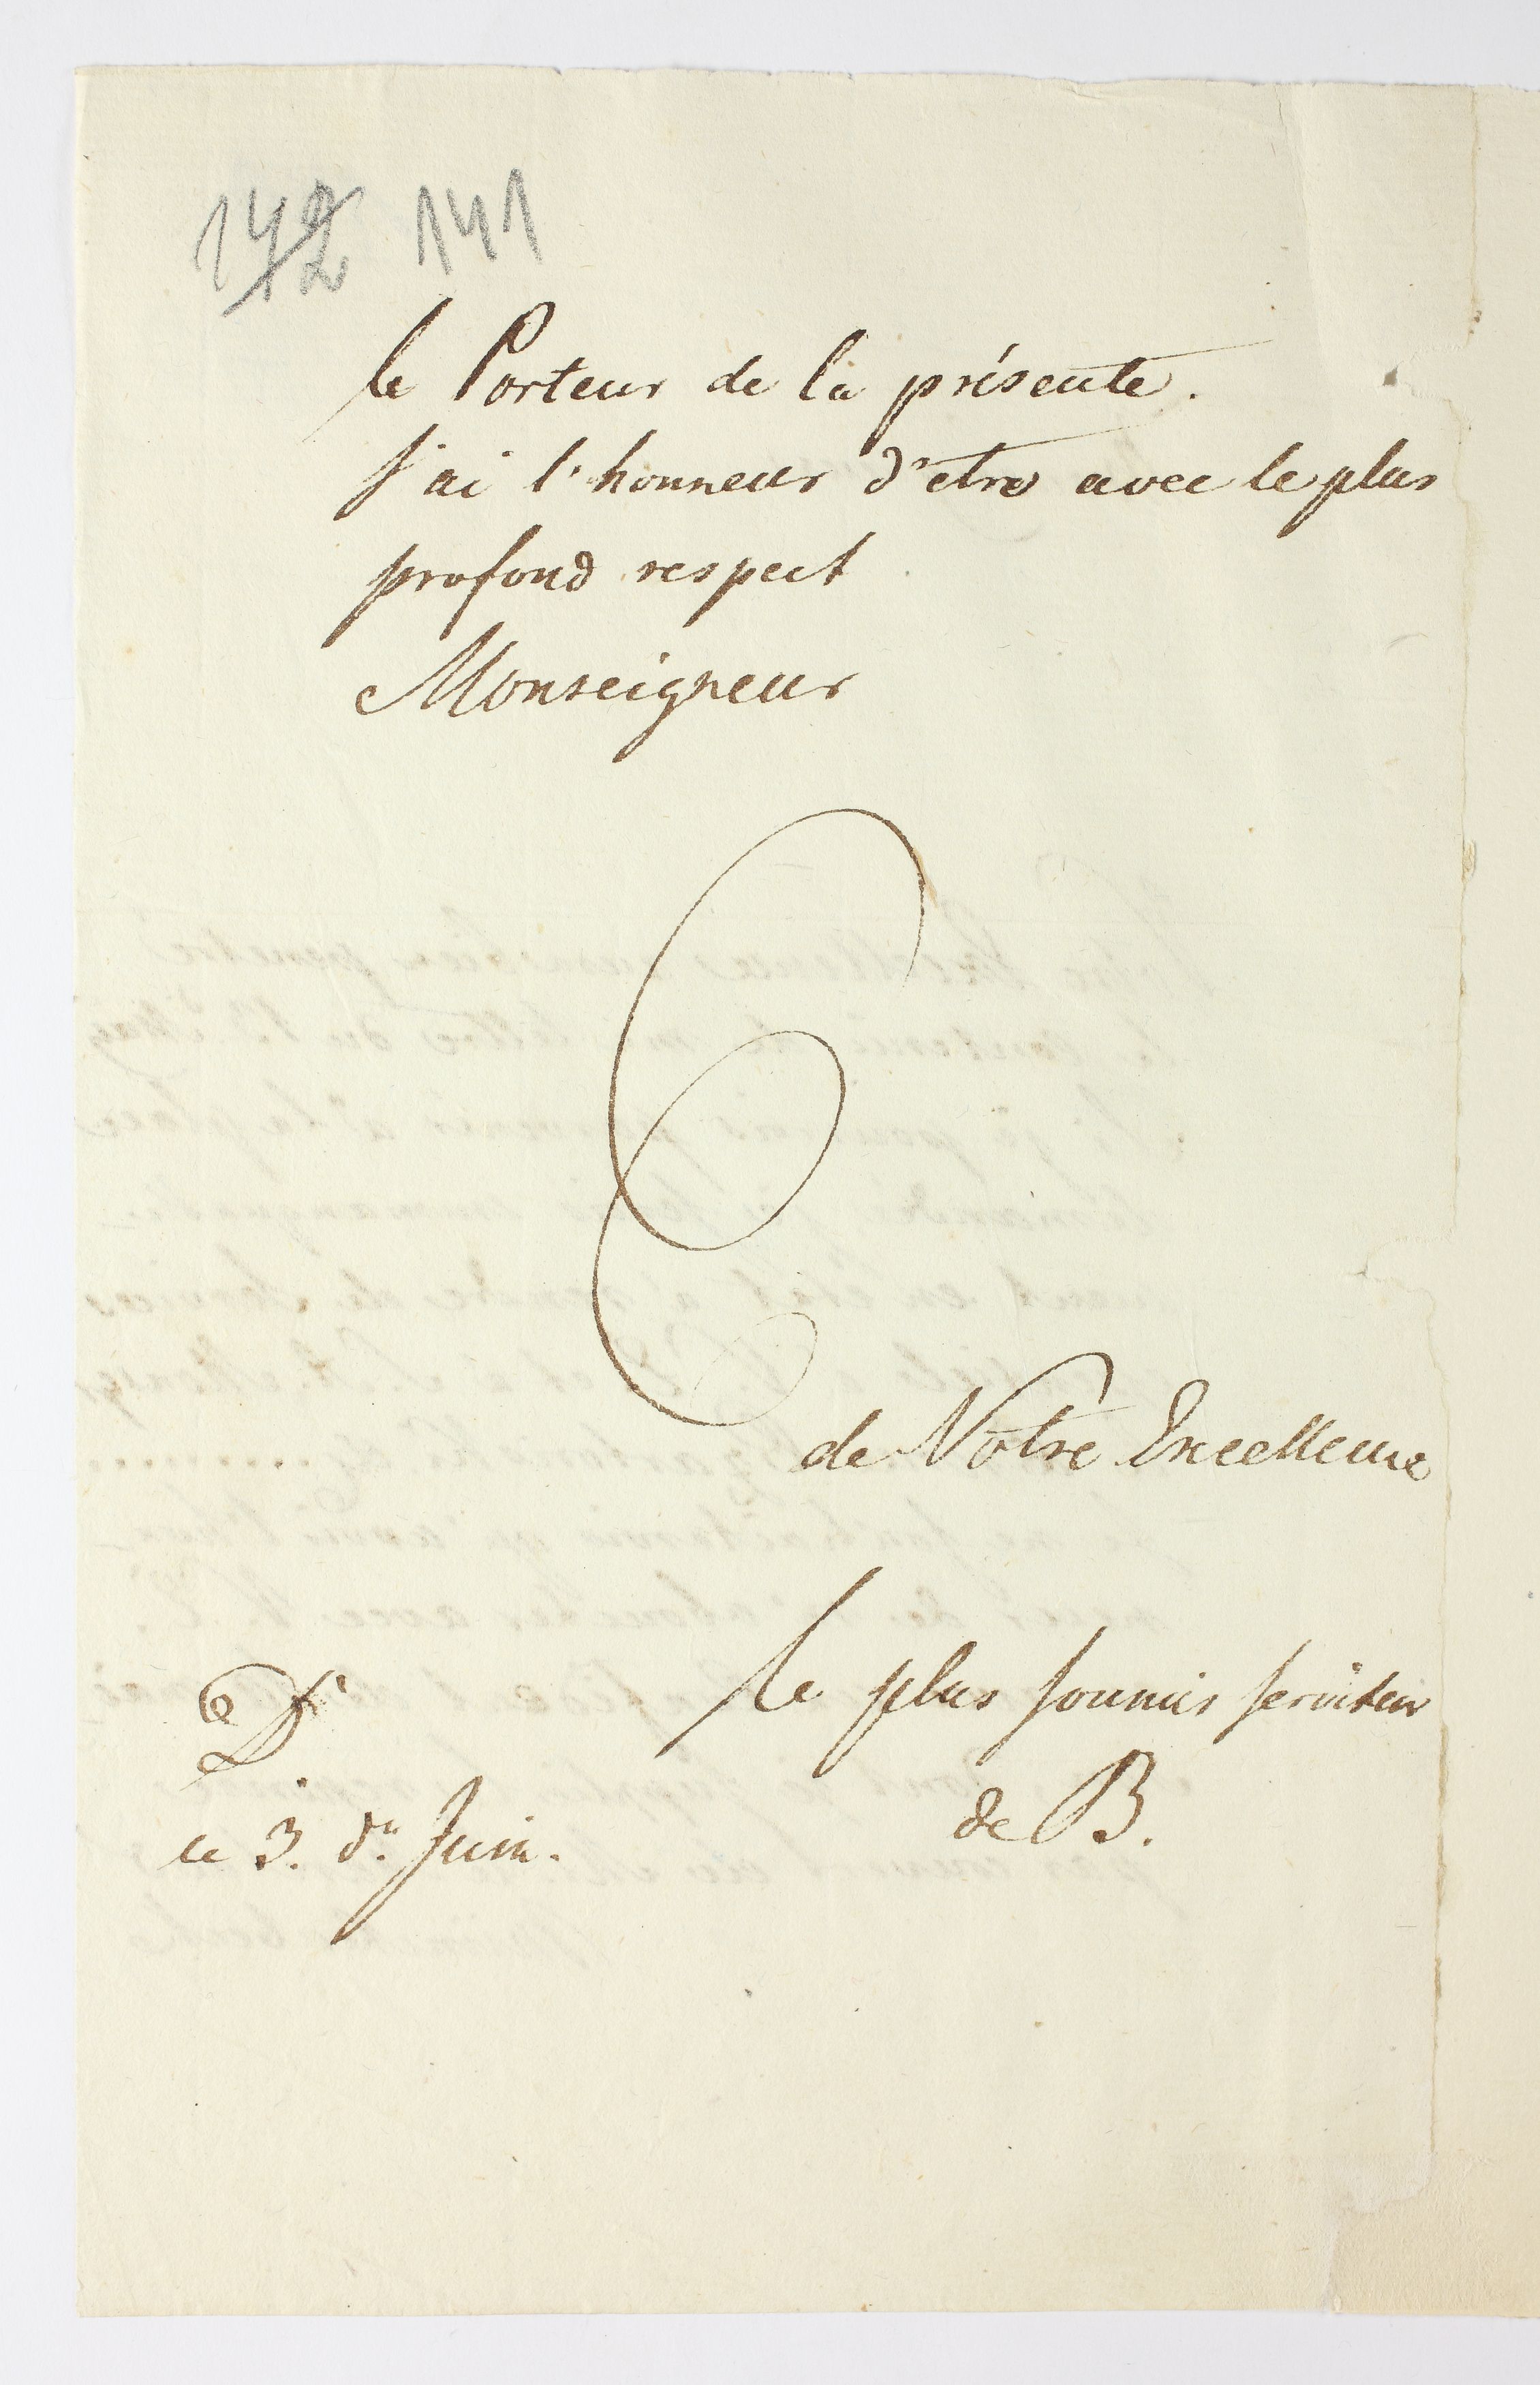 142 141
le Porteur de la présente.
J'ai l'honneur d'etre avec le plus
profond respect
Monseigneur
de Votre Excellence
le plus soumis serviteur
de B.
ce 3. dn Juin.